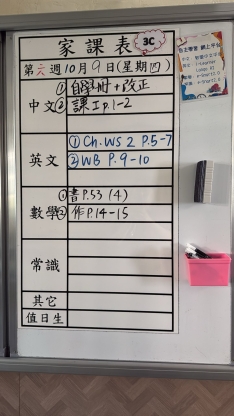 家課表 3C
第六週10月9日(星期四)
中文 ①自學冊+改正
②課工p.1-2
英文 ① Ch.WS 2 P.5-7
② WB P.9-10
數學 ①書P.53 (4)
②作P.14-15
常識
其它
值日生
自主學習 網上平台